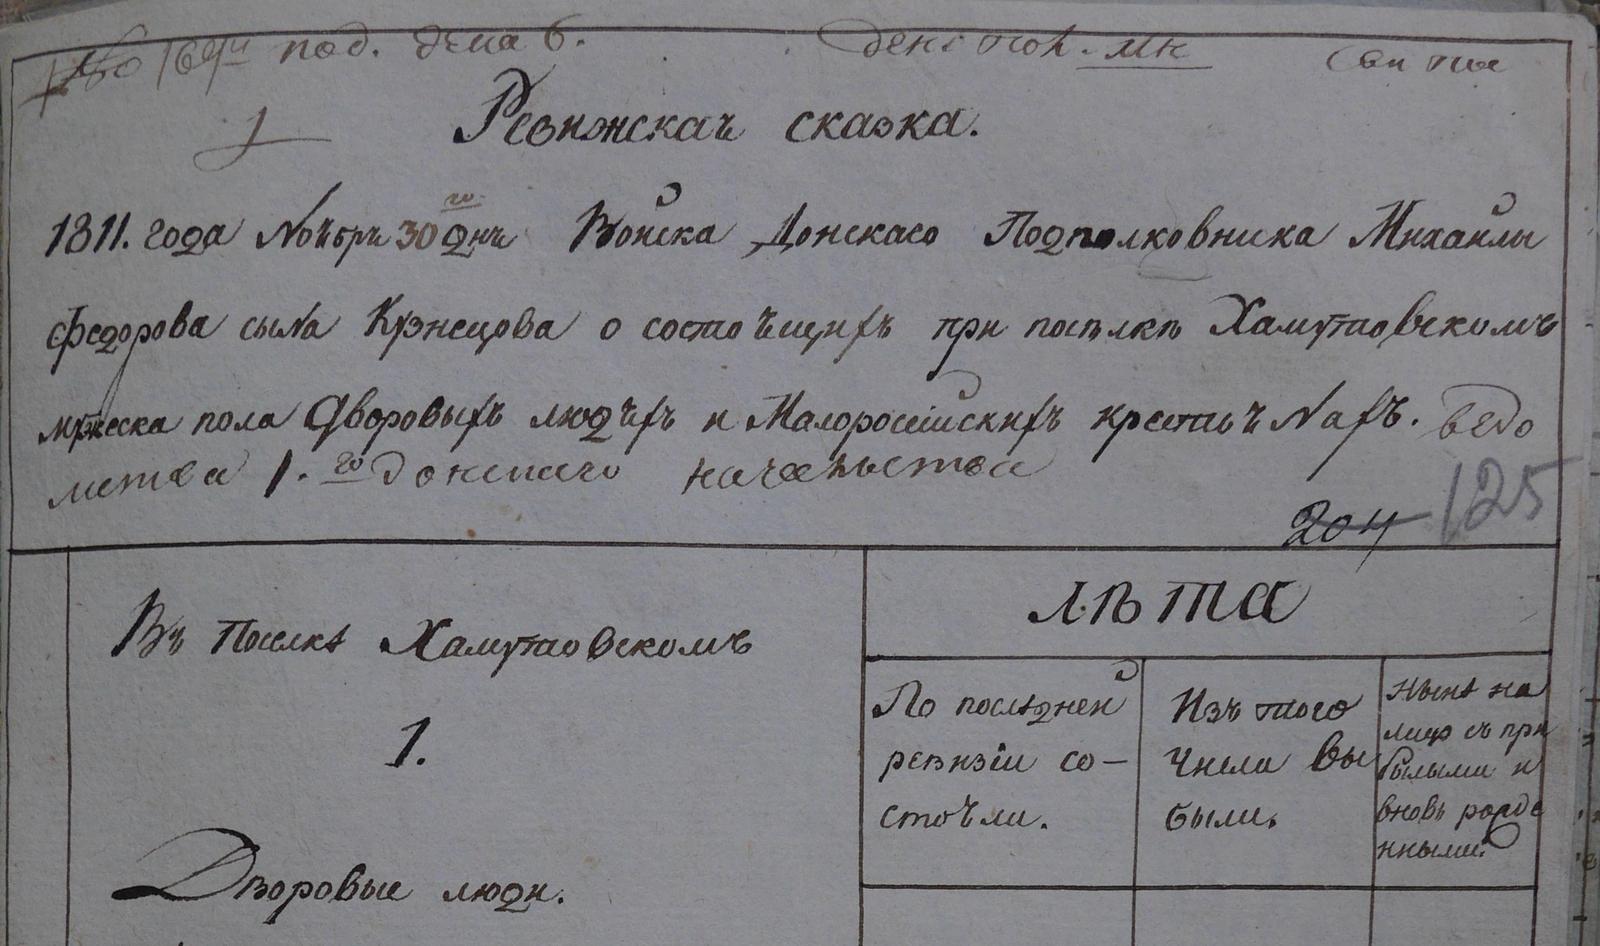 под. дела 6.
1
Ревижская сказка.
1811. года Ноября 30 го дня Войска Донскаго Подполковника Михаилы
Федорова сына Кузнецова о состоящихъ при поселкѣ Хамутовскомъ
мужеска пола Дворовыхъ людяхъ и Малоросiйскихъ крестьянахъ. ведо
мства 1. го донскаго начальства
204 125
Въ Поселкѣ Хамутовскомъ
1.
Дворовые люди.
ЛѢТА
По послѣдней
ревизiи со-
стояли.
Изъ того
числа вы
были.
Нынѣ на
лицо съ при
былыми и
вновь рожде
нными